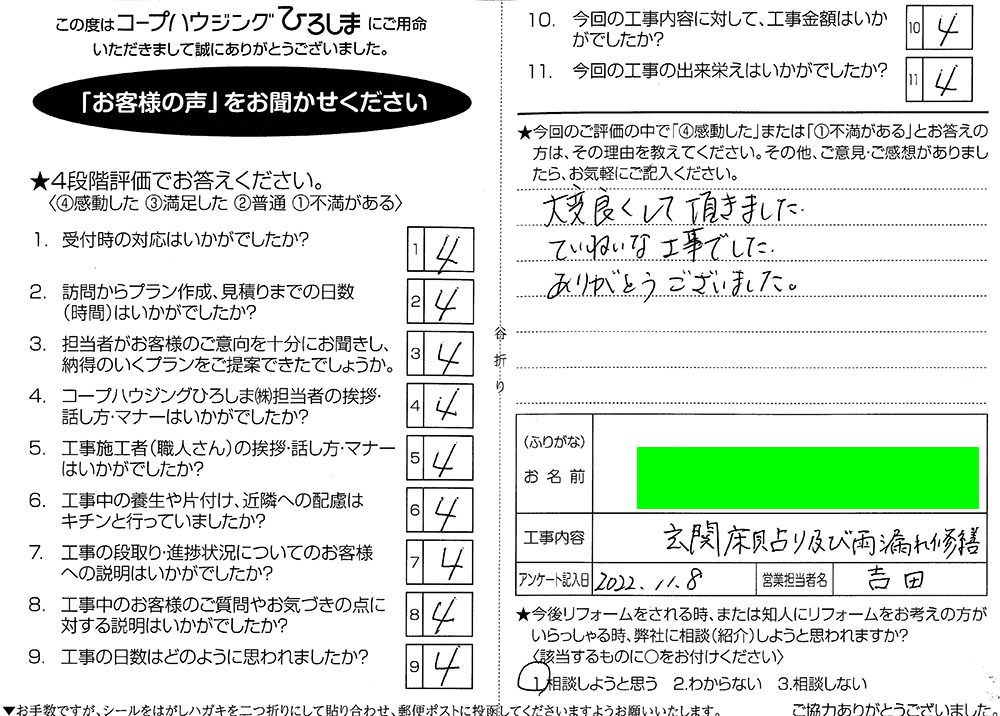 この度はコープハウジングひろしまにご用命
いただきまして誠にありがとうございました。
「お客様の声」をお聞かせください
★4段階評価でお答えください。
〈④感動した ③満足した ②普通 ①不満がある〉
1. 受付時の対応はいかがでしたか?
1 4
2. 訪問からプラン作成、見積りまでの日数
(時間)はいかがでしたか?
2 4
3. 担当者がお客様のご意向を十分にお聞きし、
納得のいくプランをご提案できたでしょうか。
3 4
4. コープハウジングひろしま㈱担当者の挨拶・
話し方・マナーはいかがでしたか?
4 4
5. 工事施工者(職人さん)の挨拶・話し方・マナー
はいかがでしたか?
5 4
6. 工事中の養生や片付け、近隣への配慮は
キチンと行っていましたか?
6 4
7. 工事の段取り・進捗状況についてのお客様
への説明はいかがでしたか?
7 4
8. 工事中のお客様のご質問やお気づきの点に
対する説明はいかがでしたか?
8 4
9. 工事の日数はどのように思われましたか?
9 4
▼お手数ですが、シールをはがしハガキを二つ折りにして貼り合わせ、郵便ポストに投函してくださいますようお願いいたします。
谷折り
10. 今回の工事内容に対して、工事金額はいか
がでしたか?
10 4
11. 今回の工事の出来栄えはいかがでしたか?
11 4
★今回のご評価の中で「④感動した」または「①不満がある」とお答えの
方は、その理由を教えてください。その他、ご意見・ご感想がありまし
たら、お気軽にご記入ください。
大変良くして頂きました.
ていねいな工事でした.
ありがとうございました。
(ふりがな)
お名前
工事内容 玄関床貼り及び雨漏れ修繕
アンケート記入日 2022.11.8 営業担当者名 吉田
★今後リフォームをされる時、または知人にリフォームをお考えの方が
いらっしゃる時、弊社に相談(紹介)しようと思われますか?
〈該当するものに○をお付けください〉
1.相談しようと思う 2.わからない 3.相談しない
ご協力ありがとうございました。